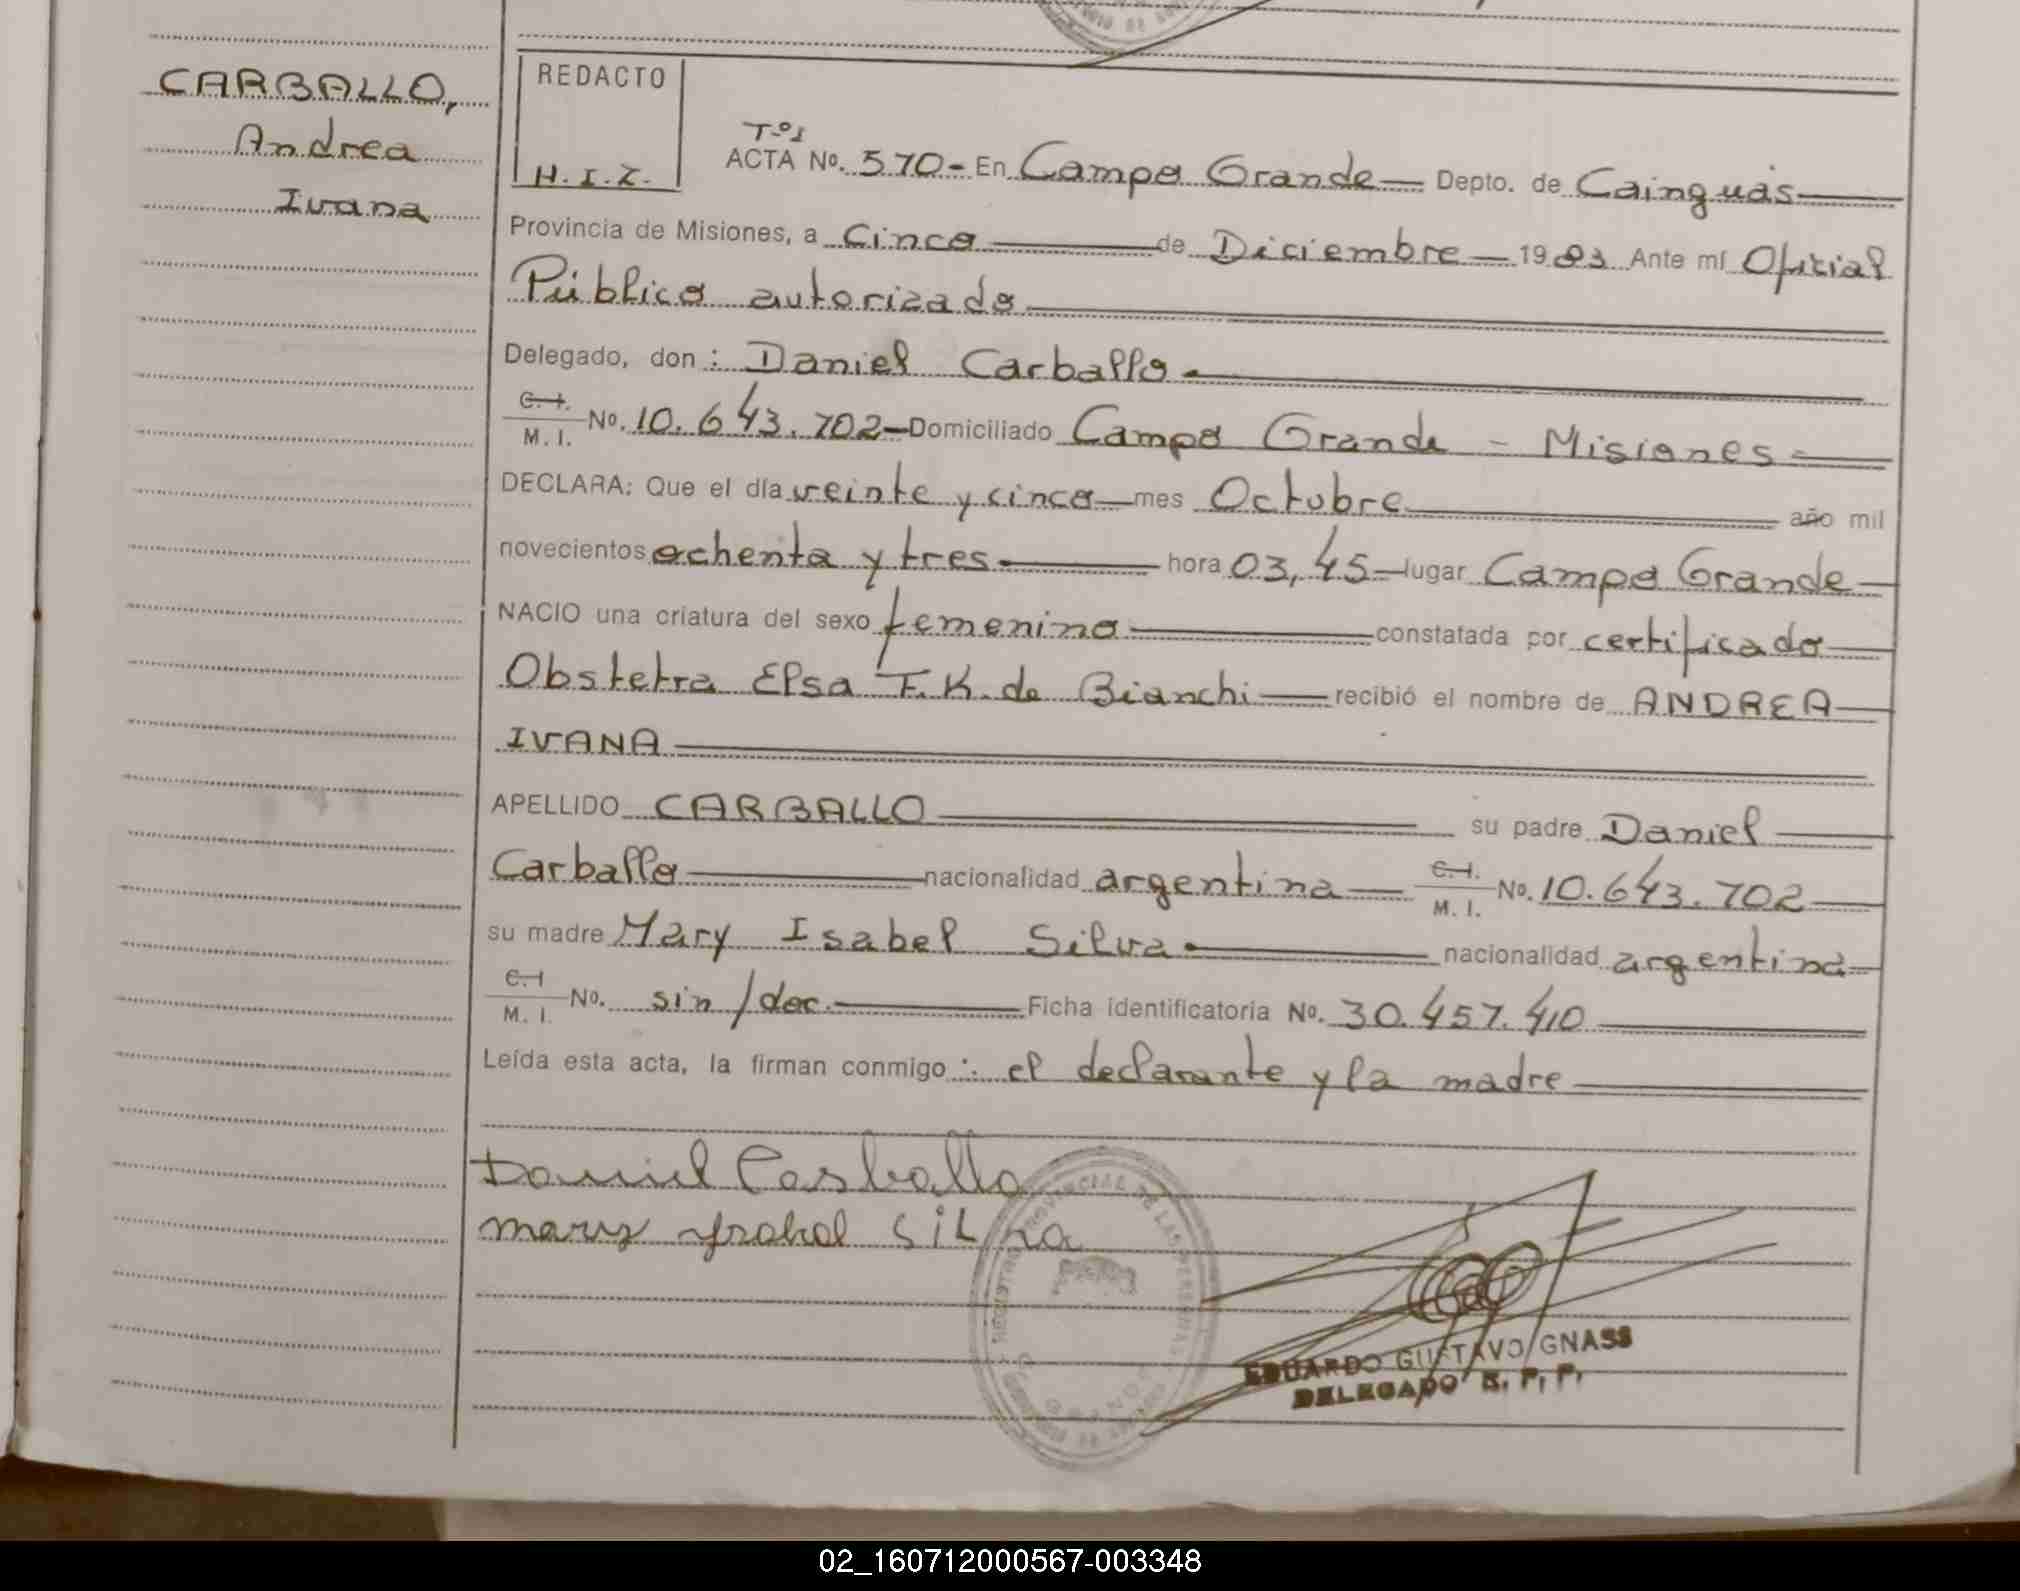 CARBALLO,
Andrea
Ivana
REDACTO
H.I.Z.
Tº1
ACTA Nº. 570- En Campo Grande Depto. de Cainguás
Provincia de Misiones, a Cinco de Diciembre 1983 Ante mí Oficial
Público autorizado
Delegado, don: Daniel Carballo
C.I. M.I. Nº. 10.643.702 Domiciliado Campo Grande - Misiones
DECLARA: Que el día veinte y cinco mes Octubre año mil
novecientos ochenta y tres hora 03,45 lugar Campo Grande
NACIO una criatura del sexo femenino constatada por certificado
Obstetra Elsa T.K. de Bianchi recibió el nombre de ANDREA
IVANA
APELLIDO CARBALLO su padre Daniel
Carballo nacionalidad argentina C.I. M.I. Nº. 10.643.702
su madre Mary Isabel Silva nacionalidad argentina
C.I M.I. Nº. sin/doc. Ficha identificatoria Nº. 30.457.410
Leída esta acta, la firman conmigo: el declarante y la madre
Daniel Carballo
mary ysabel SiLva
REGISTRO PROVINCIAL DE LAS PERSONAS
EDUARDO GUSTAVO GNASS
DELEGADO R. P. P.
02_160712000567-003348